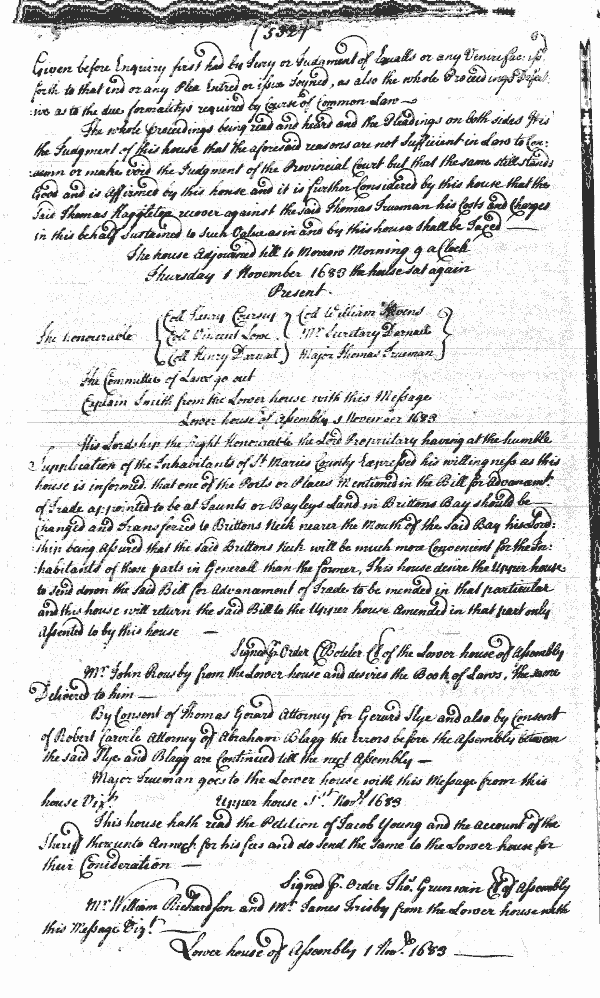 (532)
Given before Enquiry first had by Jury or Judgment of Equalls or any Venire facias iss'd
forth to that end or any Plea Entred or issue Joyned, as also the whole Proceedings Defect:
:ive as to the due formalitys required by Course of Common Law —
The whole Proceedings being read and heard and the Pleadings on both sides It is
the Judgment of this house that the aforesaid reasons are not Sufficient in Law to Con:
:demn or make void the Judgment of the Provincial Court but that the same still stands
Good and is Affirmed by this house and it is further Considered by this house that the
Said Thomas Haggleton recover against the said Thomas Trueman his Costs and Charges
in this behalf Sustained to Such Value as in and by this house shall be Taxed —
The house Adjourned till to Morrow Morning 9 a Clock
Thursday 1 November 1683 the house sat again
Present.
The honourable
Coll Henry Coursey Coll William Stevens
Coll Vincent Lowe Mr. Secretary Darnall
Coll Henry Darnall Major Thomas Trueman
The Committee of Laws go out
Captain Smith from the Lower house with this Message
Lower house of Assembly 1 November 1683
His Lordship the Right Honorable the Lord Proprietary having at the humble
Supplication of the Inhabitants of St. Maries County Expressed his willingness as this
house is informed that one of the Ports or Places Mentioned in the Bill for Advancmt.
of Trade appointed to be at Saunts or Bayleys Land in Brittons Bay should be
Changed and Transferred to Brittons Neck nearer the Mouth of the Said Bay his Lord:
:ship being Assured that the said Brittons Neck will be much more Convenient for the In:
:habitants of those parts in Generall than the former, This house desire the Upper house
to send down the said Bill for Advancement of Trade to be mended in that particular
and this house will return the said Bill to the Upper house Amended in that part only
Assented to by this house —
Signed P. Order C Boteler Cl of the Lower house of Assembly
Mr. John Rousby from the Lower house and desires the Book of Laws, the same
Delivered to him —
By Consent of Thomas Gerard Attorney for Gerard Slye and also by Consent
of Robert Carvile Attorney of Abraham Blagg the Errors before the Assembly between
the said Slye and Blagg are Continued till the next Assembly —
Major Trueman goes to the Lower house with this Message from this
house Vizt. Upper house 1st Novr. 1683
This house hath read the Petition of Jacob Young and the Account of the
Sheriff thereunto Annext for his fees and do send the Same to the Lower house for
their Consideration —
Signed P. Order Tho: Grunwin Cl of Assembly
Mr. William Richardson and Mr. James Frisby from the Lower house with
this Message Vizt. —
Lower house of Assembly 1 Novr. 1683 —